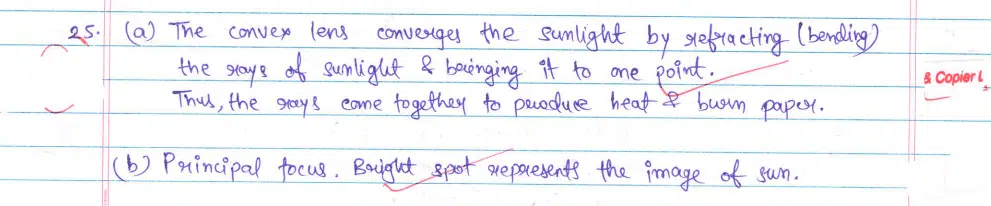 25. (a) The convex lens converges the sunlight by refracting (bending)
the rays of sunlight & bringing it to one point.
Thus, the rays come together to produce heat & burn paper.
& Copier L
(b) Principal focus. Bright spot represents the image of sun.